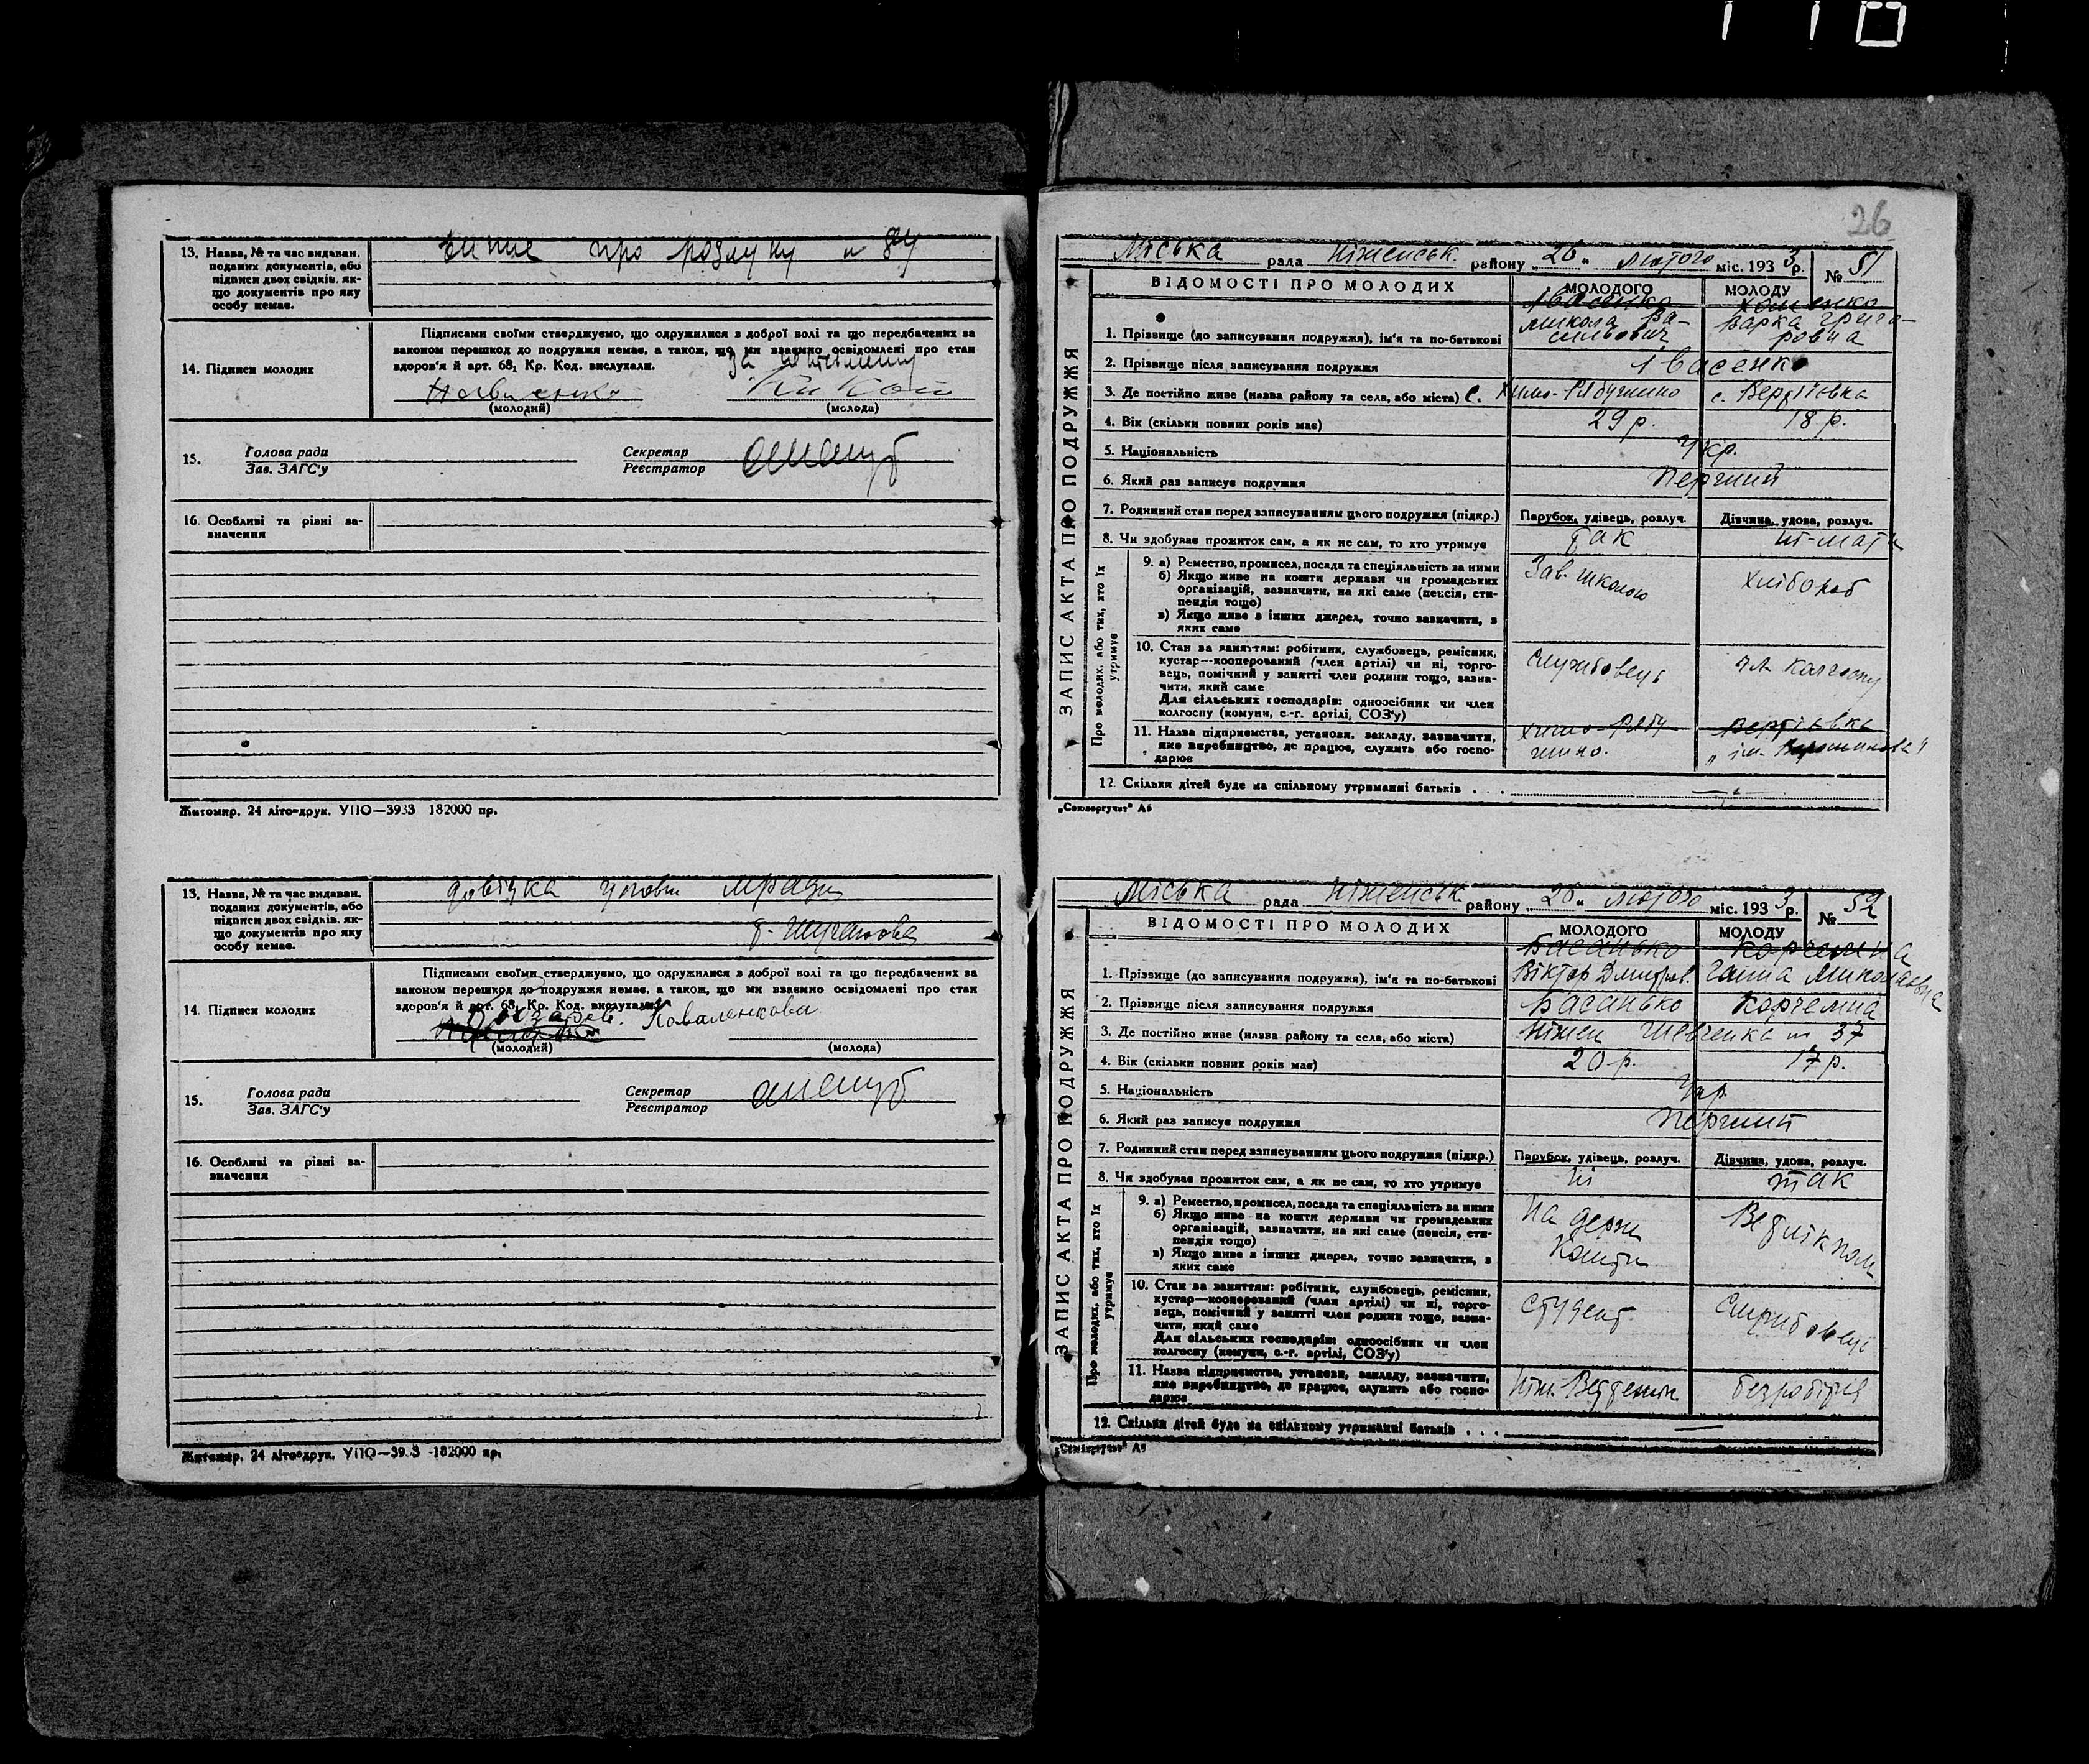 118
13. Назва, № та час видаван.
поданих документів, або
підписи двох свідків, як-
що документів про яку
особу немає.
про розлуку № 84
Підписами своїми стверджуємо, що одружилися з доброї волі та що передбачених за
законом перешкод до подружжя немає, а також, що ми взаємно освідомлені про стан
здоров'я й арт. 68, Кр. Код. вислухали.
14. Підписи молодих
За
(молодий) (молода)
15. Голова ради
Зав. ЗАГС'у
Секретар
Реєстратор
16. Особливі та різні за-
значення
Житомир. 24 літо-друк. УПО—3933 182000 пр.
13. Назва, № та час видаван.
поданих документів, або
підписи двох свідків, як-
що документів про яку
особу немає.
довідка
Підписами своїми стверджуємо, що одружилися з доброї волі та що передбачених за
законом перешкод до подружжя немає, а також, що ми взаємно освідомлені про стан
здоров'я й арт. 68, Кр. Код. вислухали.
14. Підписи молодих
Коваленкова
(молодий) (молода)
15. Голова ради
Зав. ЗАГС'у
Секретар
Реєстратор
16. Особливі та різні за-
значення
Житомир. 24 літо-друк. УПО—3933 -182000 пр.
26
Міська рада Ніженськ. району „26“ лютого міс. 1933 р. № 51
ЗАПИС АКТА ПРО ПОДРУЖЖЯ
ВІДОМОСТІ ПРО МОЛОДИХ МОЛОДОГО МОЛОДУ
Івасенко
Микола Ва-
сильович
Варка Григо-
ровна
1. Прізвище (до записування подружжя), ім'я та по-батькові
2. Прізвище після записування подружжя Івасенко
3. Де постійно живе (назва району та села, або міста) с. с. Вертіївка
4. Вік (скільки повних років має) 29 р. 18 р.
5. Національність Укр.
6. Який раз записує подружжя Перший
7. Родинний стан перед записуванням цього подружжя (підкр.) Парубок, удівець, розлуч. Дівчина, удова, розлуч.
8. Чи здобуває прожиток сам, а як не сам, то хто утримує так ні-мати
Про молодих, або тих, хто їх
утримує
9. а) Ремество, промисел, посада та спеціяльність за ними
б) Якщо живе на кошти держави чи громадських
організацій, зазначити, на які саме (пенсія, сти-
пендія тощо)
в) Якщо живе з інших джерел, точно зазначити, з
яких саме
Зав. школою хлібороб
10. Стан за заняттям: робітник, службовець, ремісник,
кустар—кооперований (член артілі) чи ні, торго-
вець, помічний у занятті член родини тощо, зазна-
чити, який саме
Для сільських господарів: одноосібник чи член
колгоспу (комуни, с.-г. артілі, СОЗ'у)
службовець чл. колгоспу
11. Назва підприємства, установи, закладу, зазначити,
яке виробництво, де працює, служить або госпо-
дарює
Вертіївка
„ім. Ворошилова“
12. Скільки дітей буде на спільному утриманні батьків . . . —
„Союзоргучет“ А6
Міська рада Ніженськ. району „26“ лютого міс. 1933 р. № 52
ЗАПИС АКТА ПРО ПОДРУЖЖЯ
ВІДОМОСТІ ПРО МОЛОДИХ МОЛОДОГО МОЛОДУ
Басанько Корчемна
1. Прізвище (до записування подружжя), ім'я та по-батькові Віктор Дмитров. Ганна Миколаєвна
2. Прізвище після записування подружжя Басанько Корчемна
3. Де постійно живе (назва району та села, або міста) Ніжен Шевченка № 37
4. Вік (скільки повних років має) 20 р. 17 р.
5. Національність Укр.
6. Який раз записує подружжя Перший
7. Родинний стан перед записуванням цього подружжя (підкр.) Парубок, удівець, розлуч. Дівчина, удова, розлуч.
8. Чи здобуває прожиток сам, а як не сам, то хто утримує ні так
Про молодих, або тих, хто їх
утримує
9. а) Ремество, промисел, посада та спеціяльність за ними
б) Якщо живе на кошти держави чи громадських
організацій, зазначити, на які саме (пенсія, сти-
пендія тощо)
в) Якщо живе з інших джерел, точно зазначити, з
яких саме
На держ
кошти
10. Стан за заняттям: робітник, службовець, ремісник,
кустар—кооперований (член артілі) чи ні, торго-
вець, помічний у занятті член родини тощо, зазна-
чити, який саме
Для сільських господарів: одноосібник чи член
колгоспу (комуни, с.-г. артілі, СОЗ'у)
студент службовець
11. Назва підприємства, установи, закладу, зазначити,
яке виробництво, де працює, служить або госпо-
дарює
безробітня
12. Скільки дітей буде на спільному утриманні батьків . . . —
„Союзоргучет“ А6